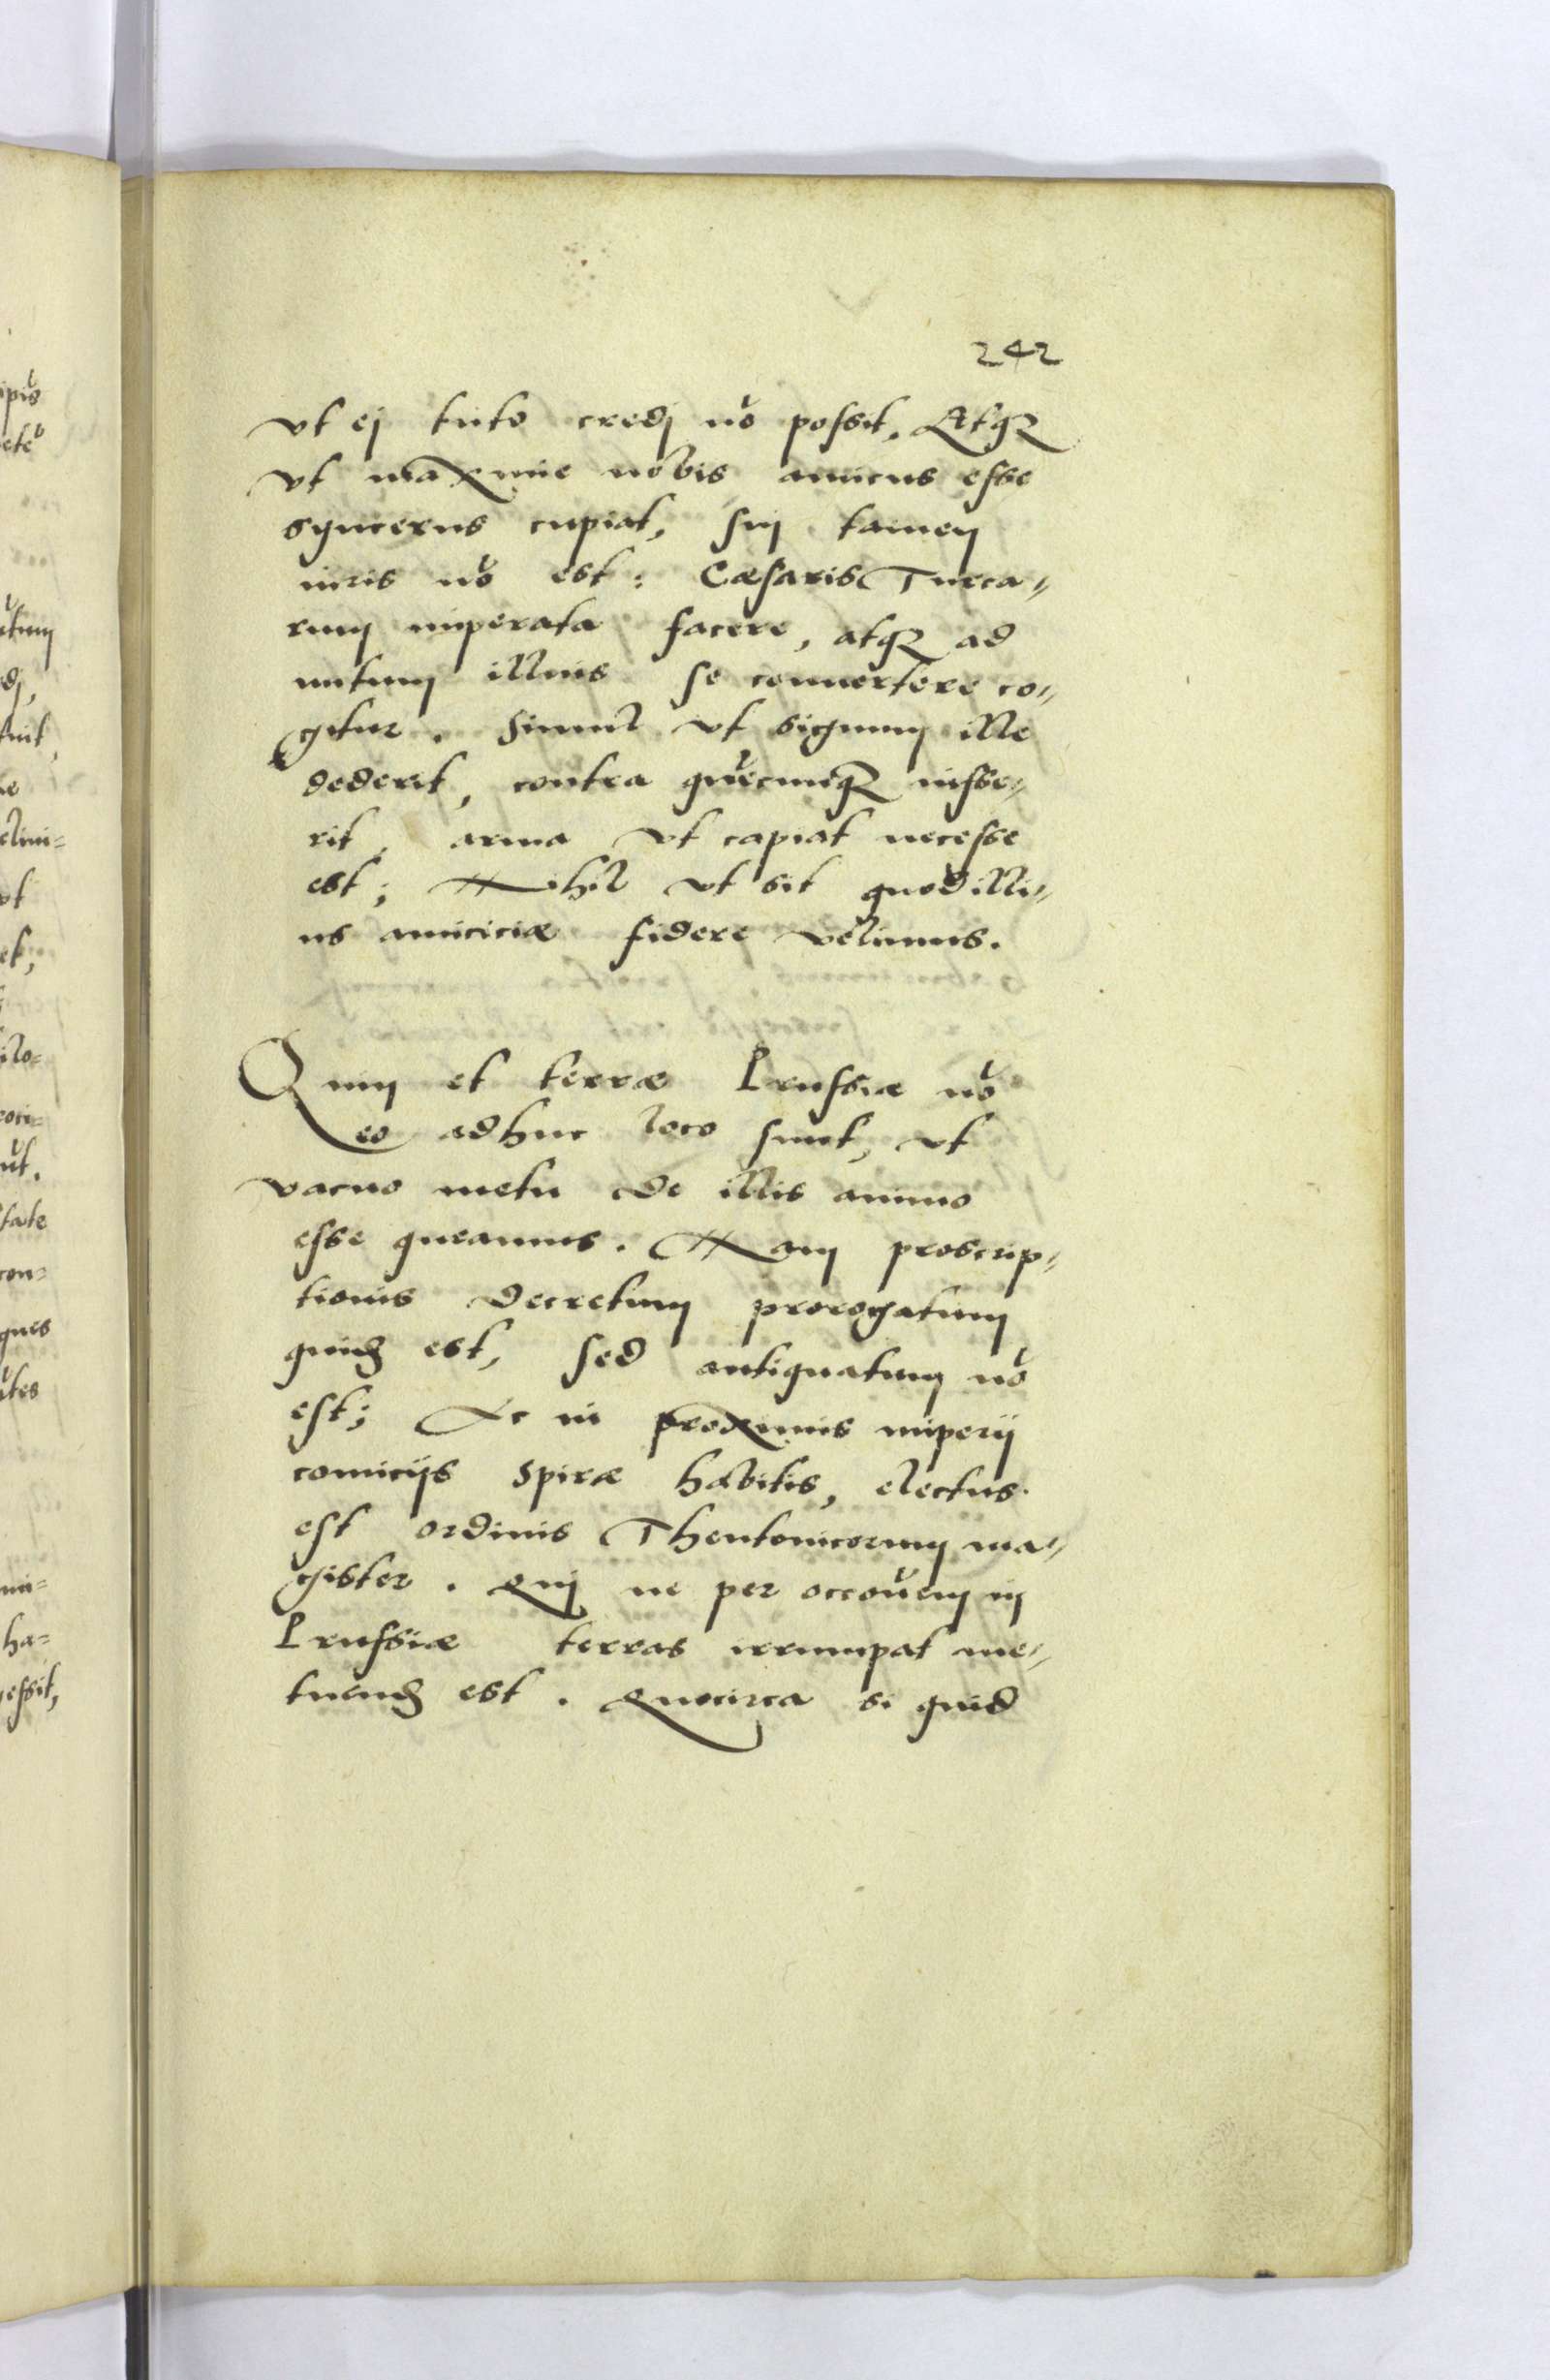 242
vt ej tuto credj nō possit, Atqꝫ
vt maxime nobis amicus esse
syncerus cupiat, suj tamen
iuris nō est: Cæsaris Turca-
rum imperata facere, atqꝫ ad
nutum illius se conuertere co-
gitur. Simul vt signum ille
dederit, contra quēcunqꝫ iusse-
rit, arma vt capiat necesse
est; Nihil vt sit quod illi-
us amiciciæ fidere velimus.
Quin et terræ Prussiæ nō
eo adhuc loco sunt, vt
vacuo metu de illis animo
esse queamus. Nam proscrip-
tionis decretum prorogatum
quidē est, sed antiquatum nō
est; Ac in proximis imperij
comicijs Spiræ habitis, electus
est ordinis Theutonicorum ma-
gister. Quj ne per occōnem in
Prussiæ terras irrumpat me-
tuendū est. Quocirca si quid
ipūs
etē
ūtum
dj,
uit,
elini-
vt
et,
ilo-
ūt.
tate
con-
ques
ūtes
mi-
ha-
essit,